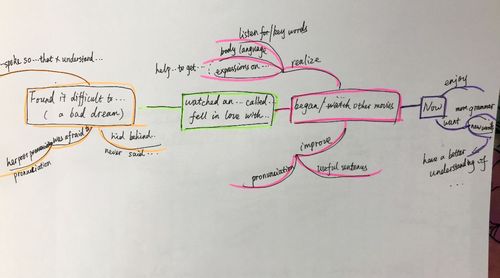 listen for/key words
body language
help... to get... : expressions on...
realize
...spoke so...that x understand...
Found it difficult to...
( a bad dream)
watched an... called...
fell in love with...
began/ watch other movies
Now
enjoy
want
more grammar
new words
have a better
understanding of
...
was afraid to
her poor
pronunciation
hid behind...
never said...
improve
pronunciation
useful sentences